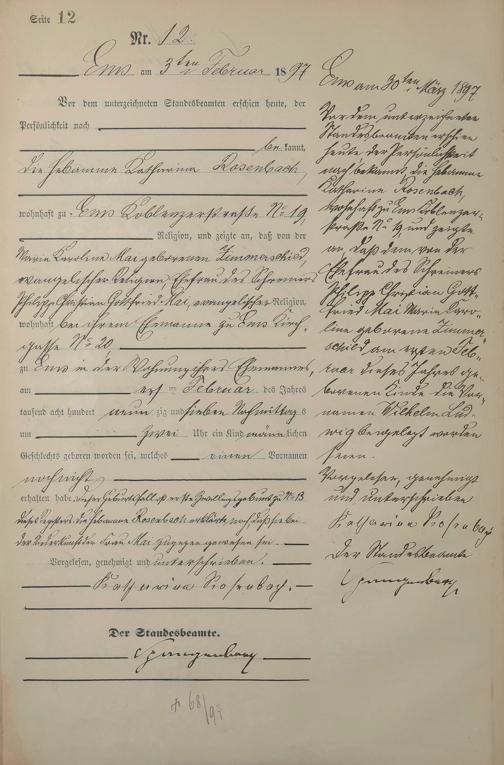 Seite 12
Nr. 12.
Ems am 3ten Februar 1897
Vor dem unterzeichneten Standesbeamten erschien heute, der
Persönlichkeit nach
bekannt,
die Hebamme Katharina Rosenbach,
wohnhaft zu Ems Koblenzerstraße No 19,
Religion, und zeigte an, daß von der
Marie Karoline Mai geborenen Zimmerschied,
evangelischer Religion, Ehefrau des Schreiners
Philipp Christian Gottfried Mai, evangelischer Religion,
wohnhaft bei ihrem Ehemanne zu Ems Kirch-
gasse No 20
zu Ems in der Wohnung ihres Ehemannes,
am ersten Februar des Jahres
tausend acht hundert neunzig und sieben Nachmittags
um zwei Uhr ein Kind männlichen
Geschlechts geboren worden sei, welches einen Vornamen
noch nicht
erhalten habe, dieser Geburtsfall ist erste Zwillingsgeburt zu No 13
dieses Registers. die Hebamme Rosenbach erklärte noch daß sie bei
der Niederkunft der Frau Mai zugegen gewesen sei.
Vorgelesen, genehmigt und unterschrieben.
Katharina Rosenbach.
Der Standesbeamte.
Spangenberg
† 68/97
Ems am 30ten März 1897
Vor dem unterzeichneten
Standesbeamten erschien
heute der Persönlichkeit
nach bekannt, die Hebamme
Katharina Rosenbach,
wohnhaft zu Ems Koblenzer-
straße No 19 und zeigte
an, daß dem von der
Ehefrau des Schreiners
Philipp Christian Gott-
fried Mai Marie Karo-
line geborene Zimmer-
schied, am ersten Feb-
ruar dieses Jahres ge-
borenen Kinde die Vor-
namen Wilhelm Lud-
wig beigelegt worden
seien.
Vorgelesen, genehmigt
und unterschrieben
Katharina Rosenbach
Der Standesbeamte
Spangenberg